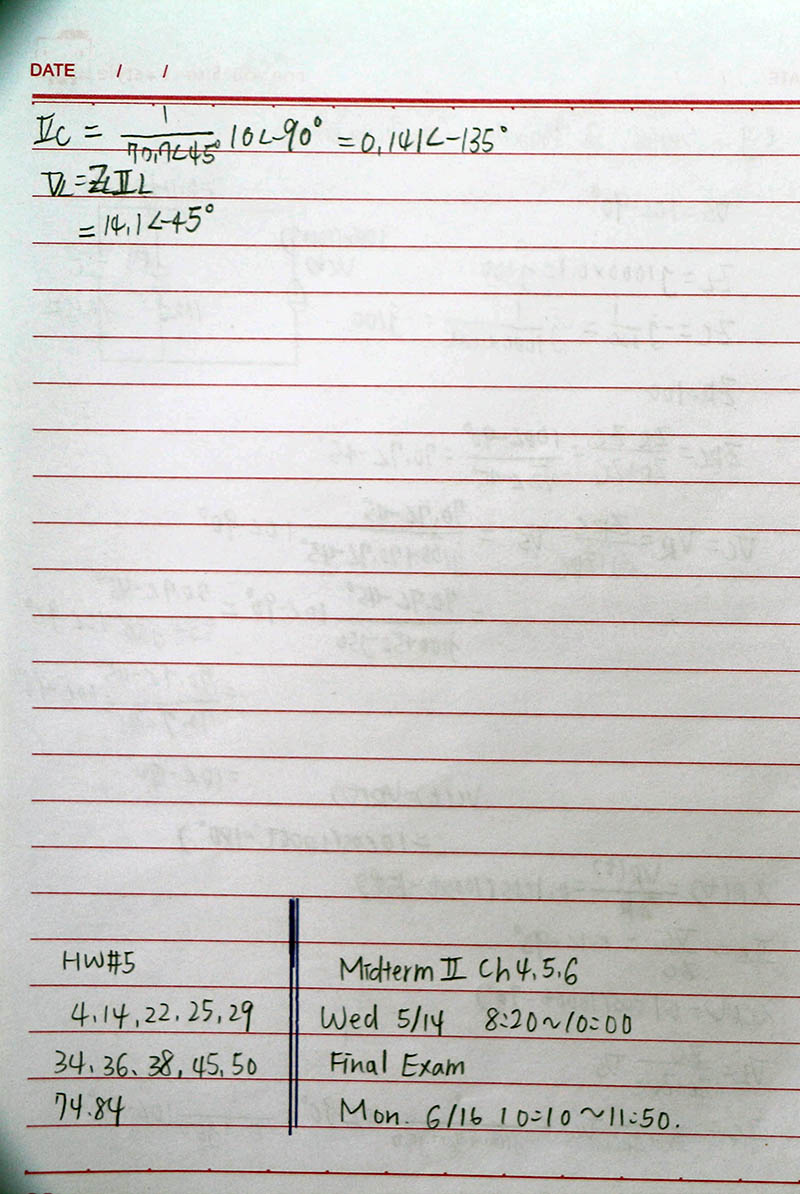 DATE / /
𝕀C = 1/70.7∠45° 10∠-90° = 0.141∠-135°
𝕍L = ZL𝕀L
= 14.1∠-45°
HW#5
4.14.22.25.29
34.36.38.45.50
74.84
Midterm II Ch 4.5.6
Wed 5/14 8:20~10:00
Final Exam
Mon. 6/16 10:10~11:50.